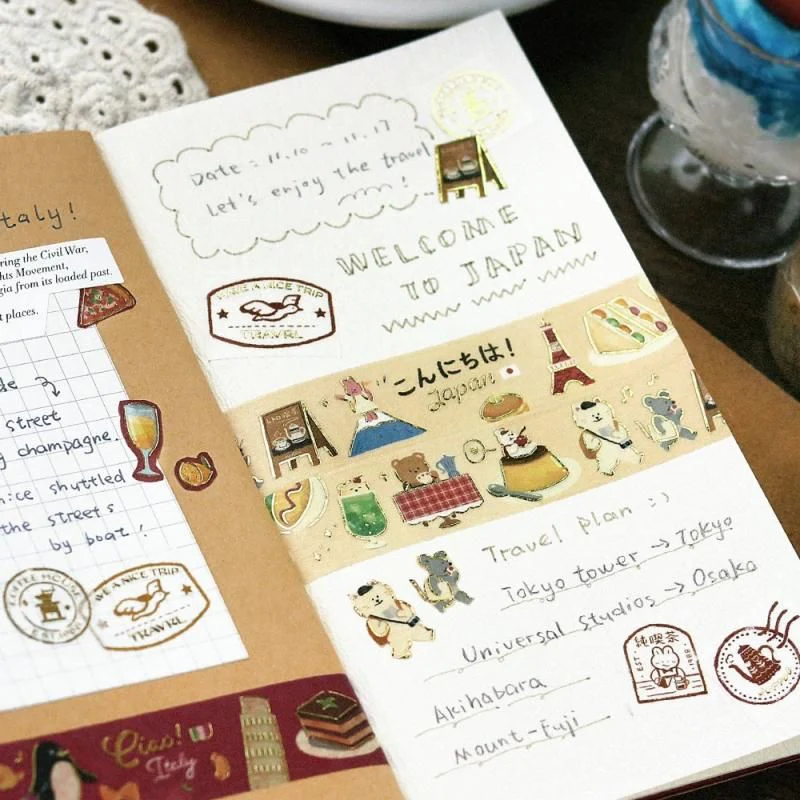 taly!
ring the Civil War,
hts Movement,
gia from its loaded past.
t places.
street
champagne.
nice shuttled
the streets
by boat!
COFFEE HOUSE
WE A NICE TRIP
TRAVRL
Ciao!
Italy
Date : 11.10 ~ 11.17
Let's enjoy the travel
!
WELCOME
TO JAPAN
WE A NICE TRIP
TRAVRL
こんにちは!
Japan
Travel plan :)
Tokyo tower → Tokyo
Universal Studios → Osaka
Akihabara
Mount-Fuji
純喫茶
EST